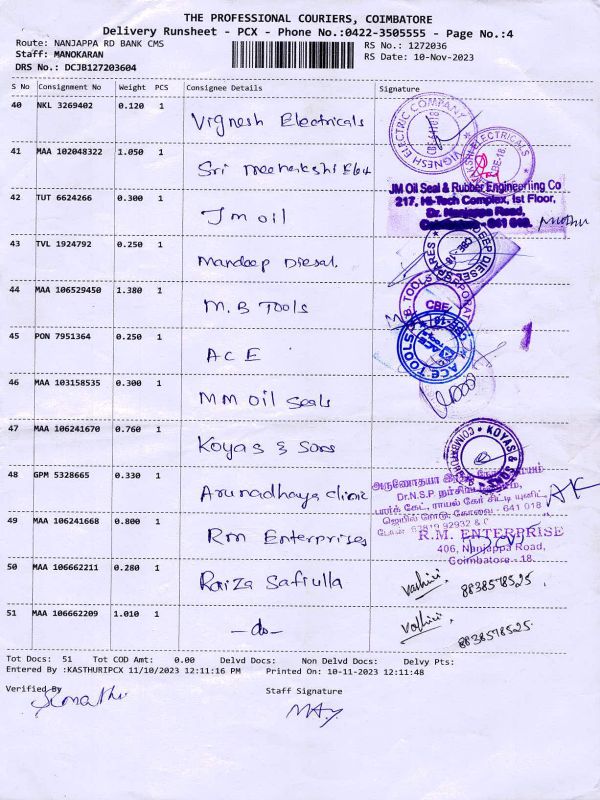 THE PROFESSIONAL COURIERS, COIMBATORE
Delivery Runsheet - PCX - Phone No.:0422-3505555 - Page No.:4
Route: NANJAPPA RD BANK CMS
RS No.: 1272036
Staff: MANOKARAN
RS Date: 10-Nov-2023
DRS No.: DCJB127203604
S No Consignment No Weight PCS Consignee Details Signature
40 NKL 3269402 0.120 1 Vignesh Electricals
VIGNESH ELECTRIC COMPANY
41 MAA 102048322 1.050 1 Sri Meenakshi Elec
JM Oil Seal & Rubber Engineering Co
217, Hi-Tech Complex, Ist Floor,
Dr. Nanjappa Road,
Coimbatore - 641 018.
42 TUT 6624266 0.300 1 Jm oil
43 TVL 1924792 0.250 1 Mandeep Diesal.
44 MAA 106529450 1.380 1 M.B Tools
CBE
45 PON 7951364 0.250 1 ACE
ACE TOOLS
1
46 MAA 103158535 0.300 1 MM oil seals
47 MAA 106241670 0.760 1 Koyas & Sons
KOYAS & SONS
48 GPM 5328665 0.330 1 Arunodhaya clinic
Dr.N.S.P
641 018
AK
49 MAA 106241668 0.800 1 Rm Enterprises
R.M. ENTERPRISE
406, Nanjappa Road,
Coimbatore - 18.
50 MAA 106662211 0.280 1 Raiza Safiulla
8838578525
51 MAA 106662209 1.010 1 -do-
8838578525
Tot Docs: 51 Tot COD Amt: 0.00 Delvd Docs: Non Delvd Docs: Delvy Pts:
Entered By :KASTHURIPCX 11/10/2023 12:11:16 PM Printed On: 10-11-2023 12:11:48
Verified By
Staff Signature